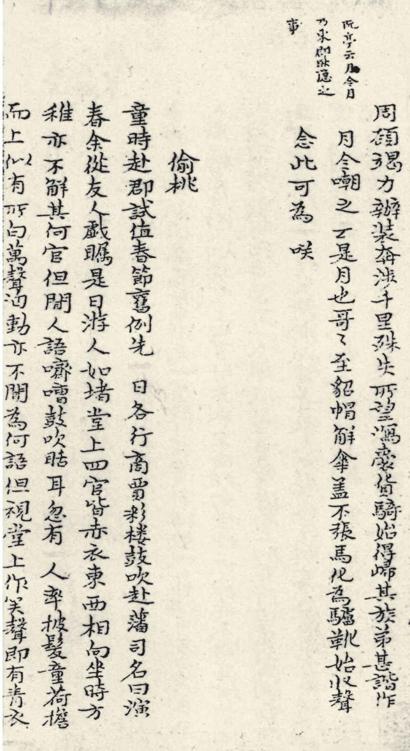 阮亭云月令
乃東郡耿隱之
事
周碩竭力辦裝奔涉千里殊失所望瀉槖貨騎始得歸其族弟甚諧作
月令嘲之云是月也哥〻至貂帽解傘盖不張馬化為驢靴始收聲
念此可為 咲
偷桃
童時赴郡試值春節舊例先 日各行商賈彩楼鼓吹赴藩司名曰演
春余從友人戲矚是日游人如堵堂上四官皆赤衣東西相向坐時方
稚亦不解其何官但聞人語嚌嘈鼓吹聒耳忽有 人率披髮童荷擔
而上似有所白萬聲洶動亦不聞為何語但視堂上作笑聲即有青衣